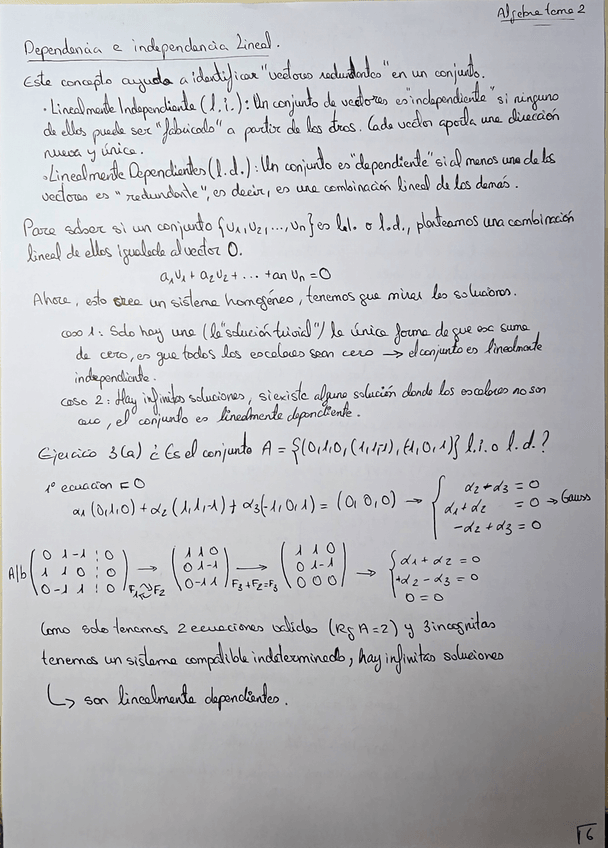 Algebra tema 2
Dependencia e independencia Lineal.
Este concepto ayuda a identificar "vectores redundantes" en un conjunto.
· Linealmente Independiente (l.i.): Un conjunto de vectores es "independiente" si ninguno
de ellos puede ser "fabricado" a partir de los otros. Cada vector aporta una dirección
nueva y única.
· Linealmente Dependientes (l.d.): Un conjunto es "dependiente" si al menos uno de los
vectores es "redundante", es decir, es una combinación lineal de los demás.
Para saber si un conjunto {v₁, v₂, ..., vn} es l.i. o l.d., planteamos una combinación
lineal de ellos igualada al vector 0.
a₁v₁ + a₂v₂ + ... + an vn = 0
Ahora, esto crea un sistema homogéneo, tenemos que mirar las soluciones.
caso 1: Solo hay una (la "solución trivial") la única forma de que esa suma
de cero, es que todos los escalares sean cero → el conjunto es linealmente
independiente.
caso 2: Hay infinitas soluciones, si existe alguna solución donde los escalares no son
cero, el conjunto es linealmente dependiente.
Ejercicio 3(a) ¿Es el conjunto A = {(0,1,0, (1,1,-1), (-1,0,1)} l.i. o l.d.?
1º ecuacion = 0
α₁ (0,1,0) + α₂ (1,1,-1) + α₃(-1,0,1) = (0,0,0) → { α₂ + α₃ = 0
α₁ + α₂ = 0 → Gauss
-α₂ + α₃ = 0
A|b ( 0 1 -1 ¦ 0 ) ( 1 1 0 ) ( 1 1 0 ) { α₁ + α₂ = 0
1 1 0 ¦ 0 → 0 1 -1 → 0 1 -1 → +α₂ - α₃ = 0
0 -1 1 ¦ 0 F₁ ↔ F₂ 0 -1 1 F₃ + F₂ = F₃ 0 0 0 0 = 0
Como solo tenemos 2 ecuaciones validas (Rg A = 2) y 3 incognitas
tenemos un sistema compatible indeterminado, hay infinitas soluciones
↳ son linealmente dependientes.
6